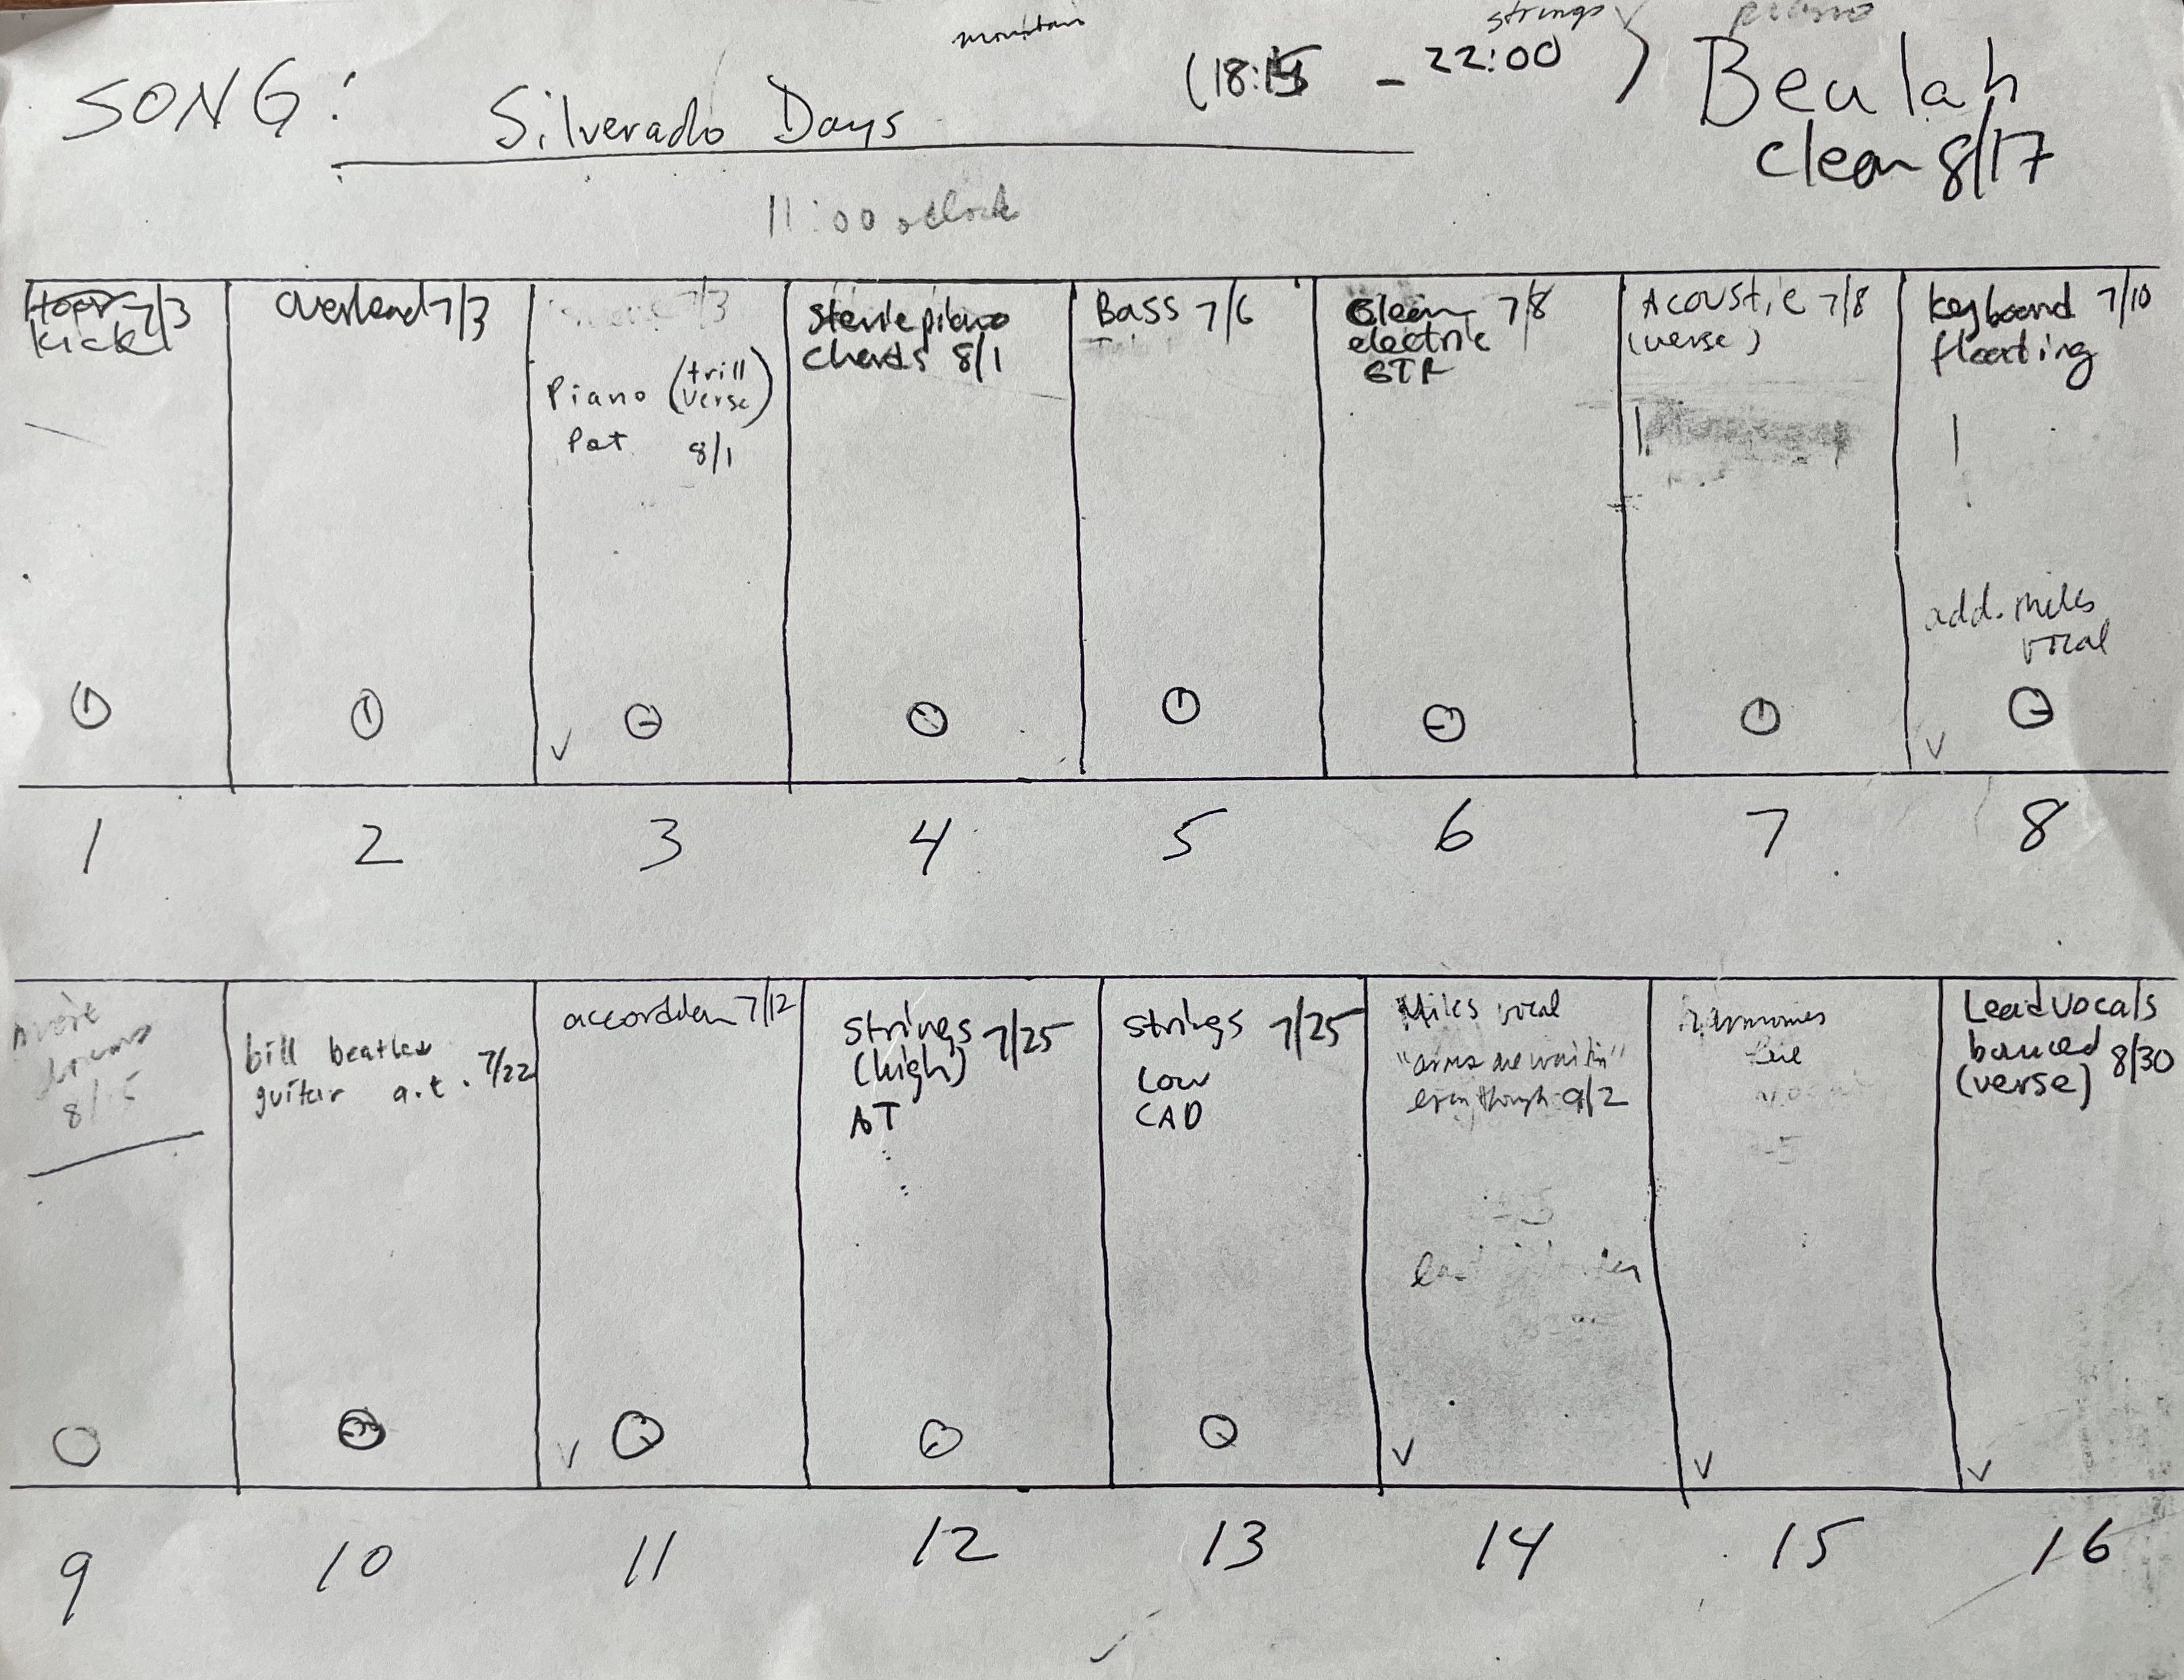 mountain
strings
piano
SONG: Silverado Days (18:15 - 22:00) Beulah
clean 8/17
11:00 oclock
7/3
kick
overhead 7/3
7/3
Piano (trill
verse)
Pat 8/1
piano
chords 8/1
Bass 7/6
Clean 7/8
electric
GTR
Acoustic 7/8
(verse)
keyboard 7/10
floating
add. miles
vocal
1 2 3 4 5 6 7 8
drums
8/15
bill beatles
guitar a.t. 7/22
accordian 7/12
strings 7/25
(high)
AT
strings 7/25
Low
CAD
Miles vocal
"arms are waitin"
even though 9/2
harmonies
Lead vocals
bounced 8/30
(verse)
9 10 11 12 13 14 15 16